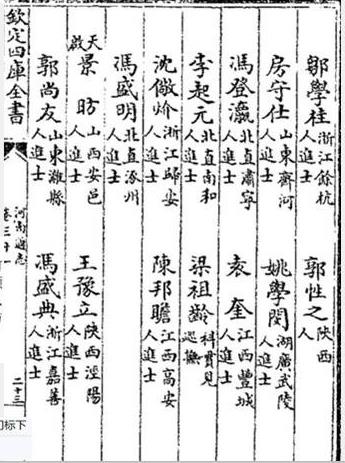 鄒學柱浙江餘杭人進士
郭性之陝西人
房守仕山東齊河人進士
姚學閔湖廣武陵人進士
馮登瀛北直肅寧人進士
袁奎江西豐城人進士
李起元北直南和人進士
梁祖齡科貫見巡撫
沈儆炌浙江歸安人進士
陳邦瞻江西高安人進士
馮盛明北直涿州人進士
天啟
景昉山西安邑人進士
王豫立陝西涇陽人進士
郭尚友山東濰縣人進士
馮盛典浙江嘉善人進士
欽定四庫全書
河南通志
卷三十一
二十三
标下